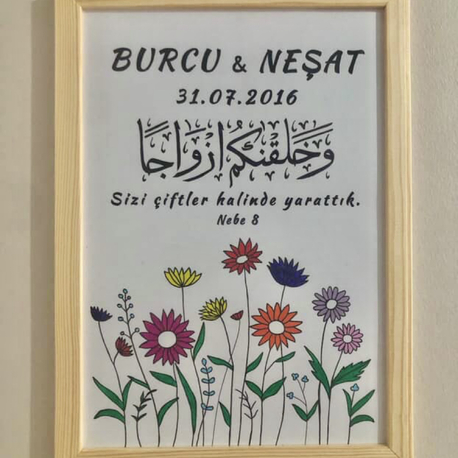 BURCU & NEŞAT
31.07.2016
وَخَلَقْنٰكُمْ اَزْوَاجًا
Sizi çiftler halinde yarattık.
Nebe 8